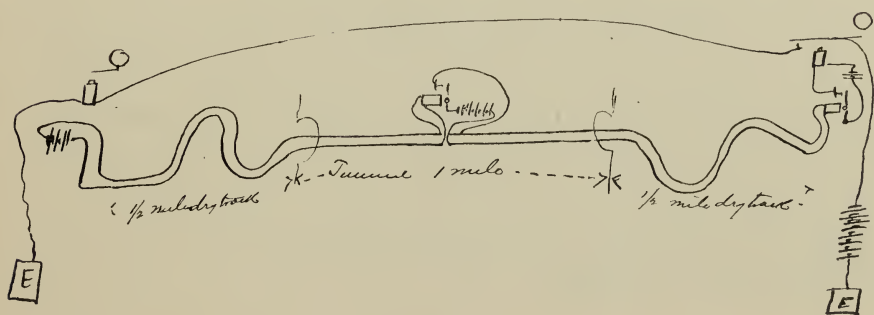 Tunnel 1 mile
1/2 mile dry track
1/2 mile dry track
E
E